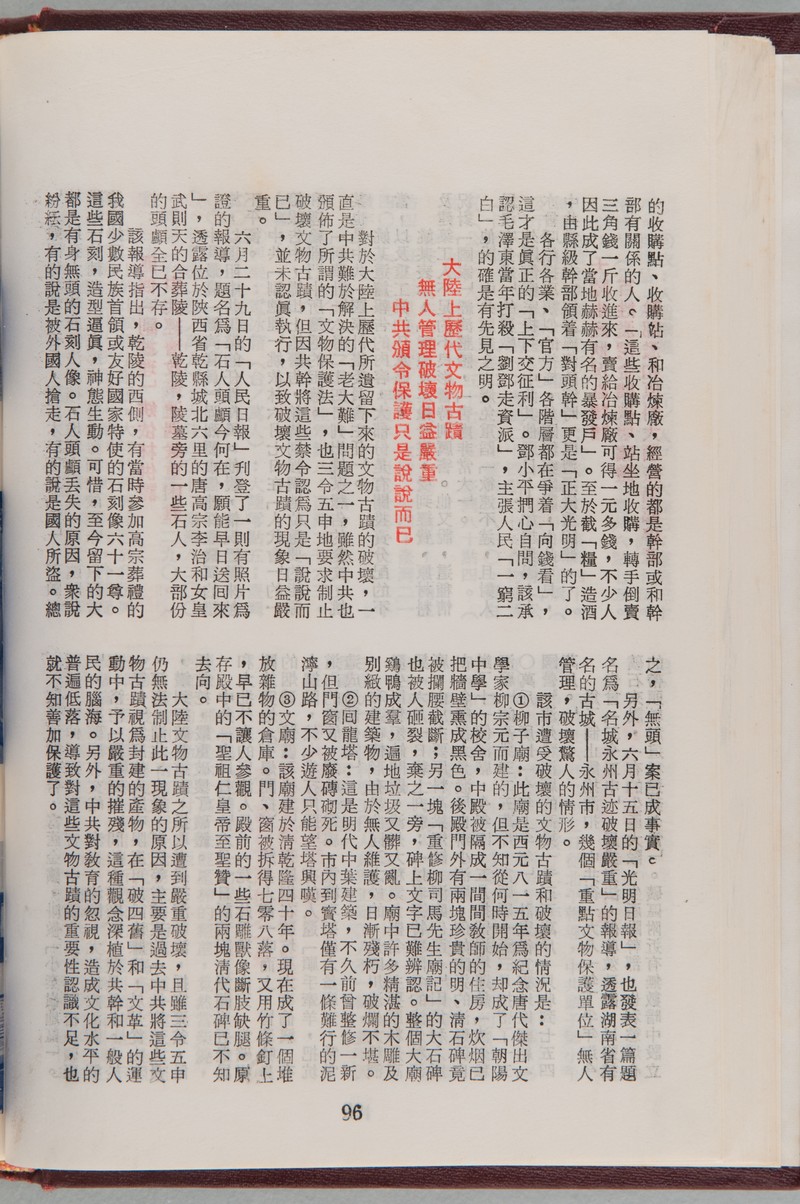 的收購點、收購站、和冶煉廠，經營的都是幹部或和幹
部有關係的人。「這些收購點、站坐地收購，轉手倒賣
三角錢一斤收進來，賣給冶煉廠可得一元多錢，不少人
因此成了當地赫赫有名的暴發戶」。至於截「糧」造酒
，由縣級幹部領着「對頭幹」更是「正大光明」的了。
各行各業、「官方」各階層都在爭着「向錢看」，
這才是眞正的「上下交征利」。鄧小平捫心自問，該承
認毛澤東當年打殺「劉鄧走資派」，主張人民「一窮二
白」，的確是有先見之明。
大陸上歷代文物古蹟
無人管理破壞日益嚴重。
中共頒令保護只是說說而已
對於大陸上歷代所遺留下來的文物古蹟的破壞，一
直是中共難於解決的「老大難」問題之一，雖然中共也
頒佈了所謂的「文物保護法」，也三令五申地要求制止
破壞文物古蹟，但因共幹將這些禁令認爲只是「說說而
已」，並未認眞執行，以致破壞文物古蹟的現象日益嚴
重。
六月二十九日的「人民日報」刋登了一則有照片爲
證的報導，題名爲「石人頭顱今何在，願能早日送回來
」，透露位於陝西省乾縣城北六里的唐高宗李治和女皇
武則天的合葬陵——乾陵，陵墓旁的一些石人，大部份
的頭顱全已不存。
該報導指出，乾陵的西側，有當時參加高宗葬禮的
我國少數民族首領或友好國家特使的石刻像六十一尊。
這些石刻，造型逼眞，神態生動。可惜，至今留下的大
都是有身無頭的石刻人像。石人頭顱丟失的原因，衆說
紛紜，有的說是被外國人搶走，有的說是國人所盜。總
之，「無頭」案已成事實。
另外，六月十五日的「光明日報」，也發表一篇題
名爲「名城永州古迹破壞嚴重」的報導，透露湖南省有
名的古城——永州市，幾個「重點文物保護單位」無人
管理，破壞驚人的情形。
該市遭受破壞的文物古蹟和破壞的情況是：
①柳子廟：此廟是西元八一五年爲紀念唐代傑出文
學家柳宗元而建的，但不知從何時開始，却成了「朝陽
中學」的校舍，中殿被隔成一間間教師的住房，炊烟已
把牆壁熏成黑色。後殿門外有兩塊珍貴的明、清石碑竟
被攔腰截斷；另一塊「重修柳司馬先生廟記」的大石碑
也被人砸裂，棄之一旁，碑上文字已難辨認。整個大廟
鷄鴨成羣，遍地垃圾又髒又亂。廟中許多精湛的木雕及
別緻的建築物，由於無人維護，日漸殘朽，破爛不堪。
②回龍塔：這是明代中葉建築，不久前曾整修一新
，但門窗又被廢磚砌死。市內到寳塔僅有一條難行的泥
濘山路，不少遊人只能望塔興嘆。
③文廟：該廟建於清乾隆四十年。現在成了一個堆
放雜物的倉庫。門、窗被拆得七零八落，又用竹條釘上
，早已不讓人參觀。殿前的一些石雕獸像斷肢缺腿。原
存殿中的「聖祖仁皇帝至聖贊」的兩塊清代石碑已不知
去向。
大陸文物古蹟之所以遭到嚴重破壞，且雖三令五申
仍無法制止此一現象的原因，主要是過去中共將這些文
物古蹟視爲封建的產物，在「破四舊」和「文革」的運
動中，予以嚴重的摧殘，這種觀念深植於共幹和一般人
民的腦海。另外，中共對敎育的忽視，造成文化水平的
普遍低落，導致對這些文物古蹟的重要性認識不足，也
就不知善加保護了。
96